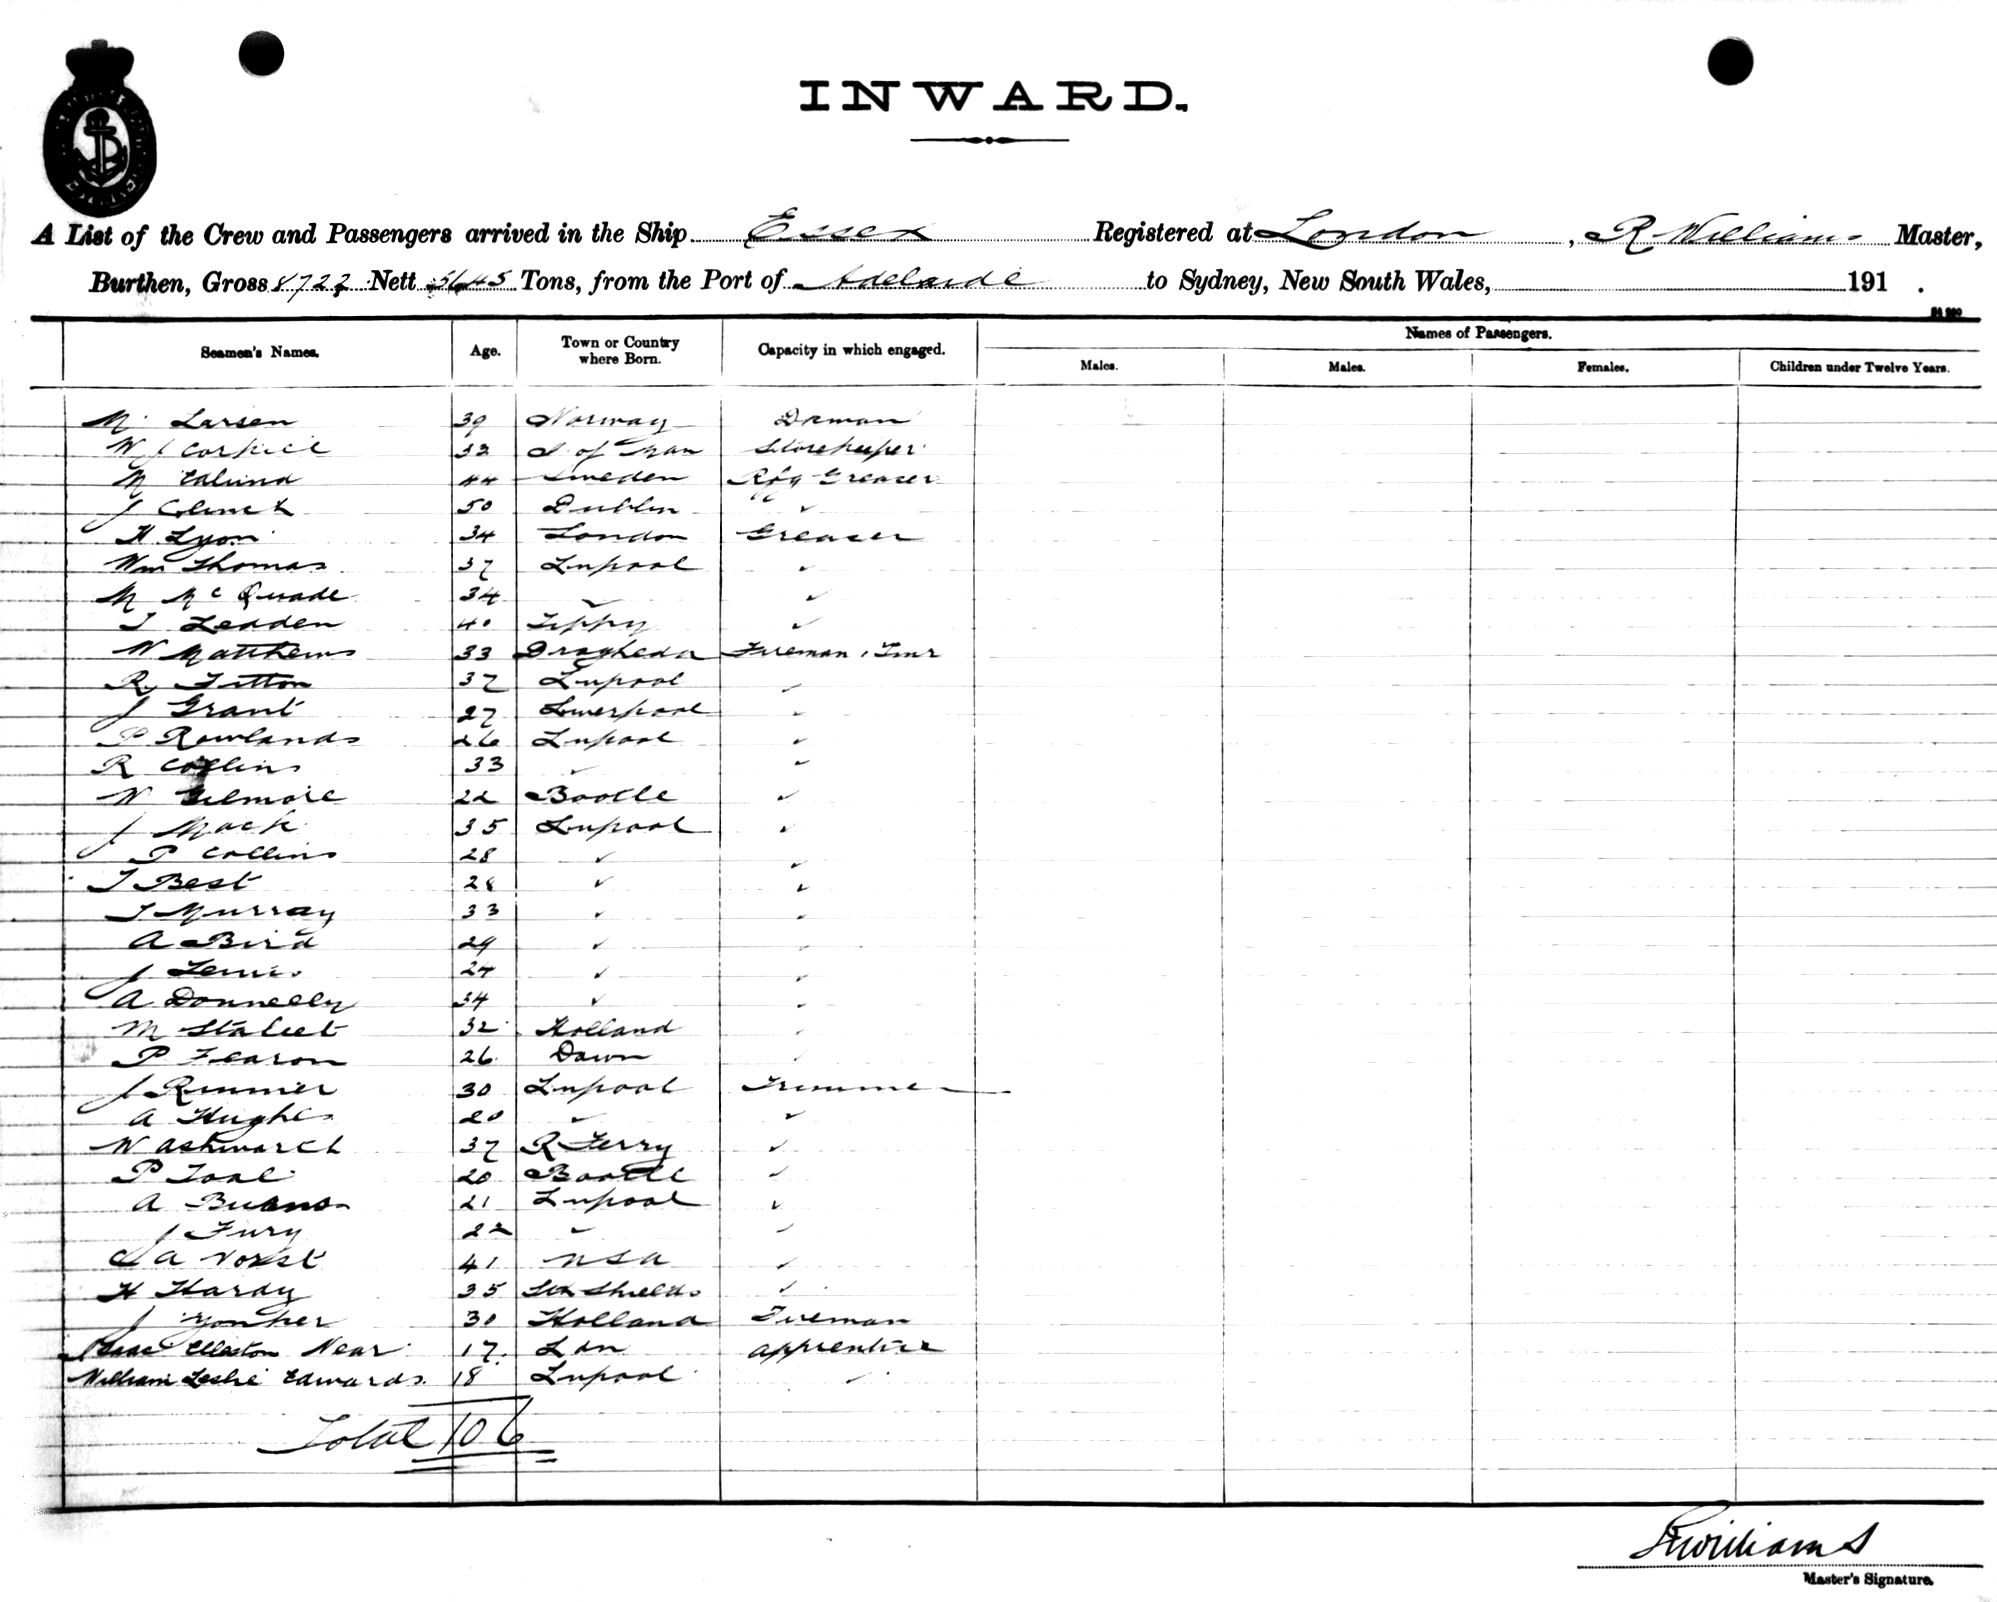 INWARD.
A List of the Crew and Passengers arrived in the Ship Essex Registered at London, R Williams Master,
Burthen, Gross 8722 Nett 5645 Tons, from the Port of Adelaide to Sydney, New South Wales, 191 .
Names of Passengers.
Seamen's Names. Age. Town or Country where Born. Capacity in which engaged. Males. Males. Females. Children under Twelve Years.
M Larsen 39 Norway Dkman
W J Corkill 32 I of Man Storekeeper
M Edlund 44 Sweden Rfg Greaser
J Clinch 50 Dublin "
H Lyon 34 London Greaser
Wm Thomas 37 Lupool "
M McQuade 34 " "
T Leaden 40 Tippy "
W Matthews 33 Drogheda Fireman & Tmr
R Titton 37 Lupool "
J Grant 27 Liverpool "
P Rowlands 26 Lupool "
R Collins 33 " "
W Gilmore 22 Bootle "
J Mack 35 Lupool "
P Collins 28 " "
T Best 28 " "
T Murray 33 " "
A Bird 29 " "
J Lewis 24 " "
A Donnelly 34 " "
M 32 Holland "
P Fearon 26 Down "
J Rimmer 30 Lupool Trimmer
A Hughes 20 " "
W Ashworth 37 R Ferry "
P Toal 20 Bootle "
A Burns 21 Lupool "
J Fury 22 " "
C A Vorst 41 USA "
H Hardy 35 Sth Shields "
J Yonker 30 Holland Fireman
Isaac Elleston Near 17 Lon apprentice
William Leslie Edwards 18 Lupool "
Total 106
R Williams
Master's Signature.